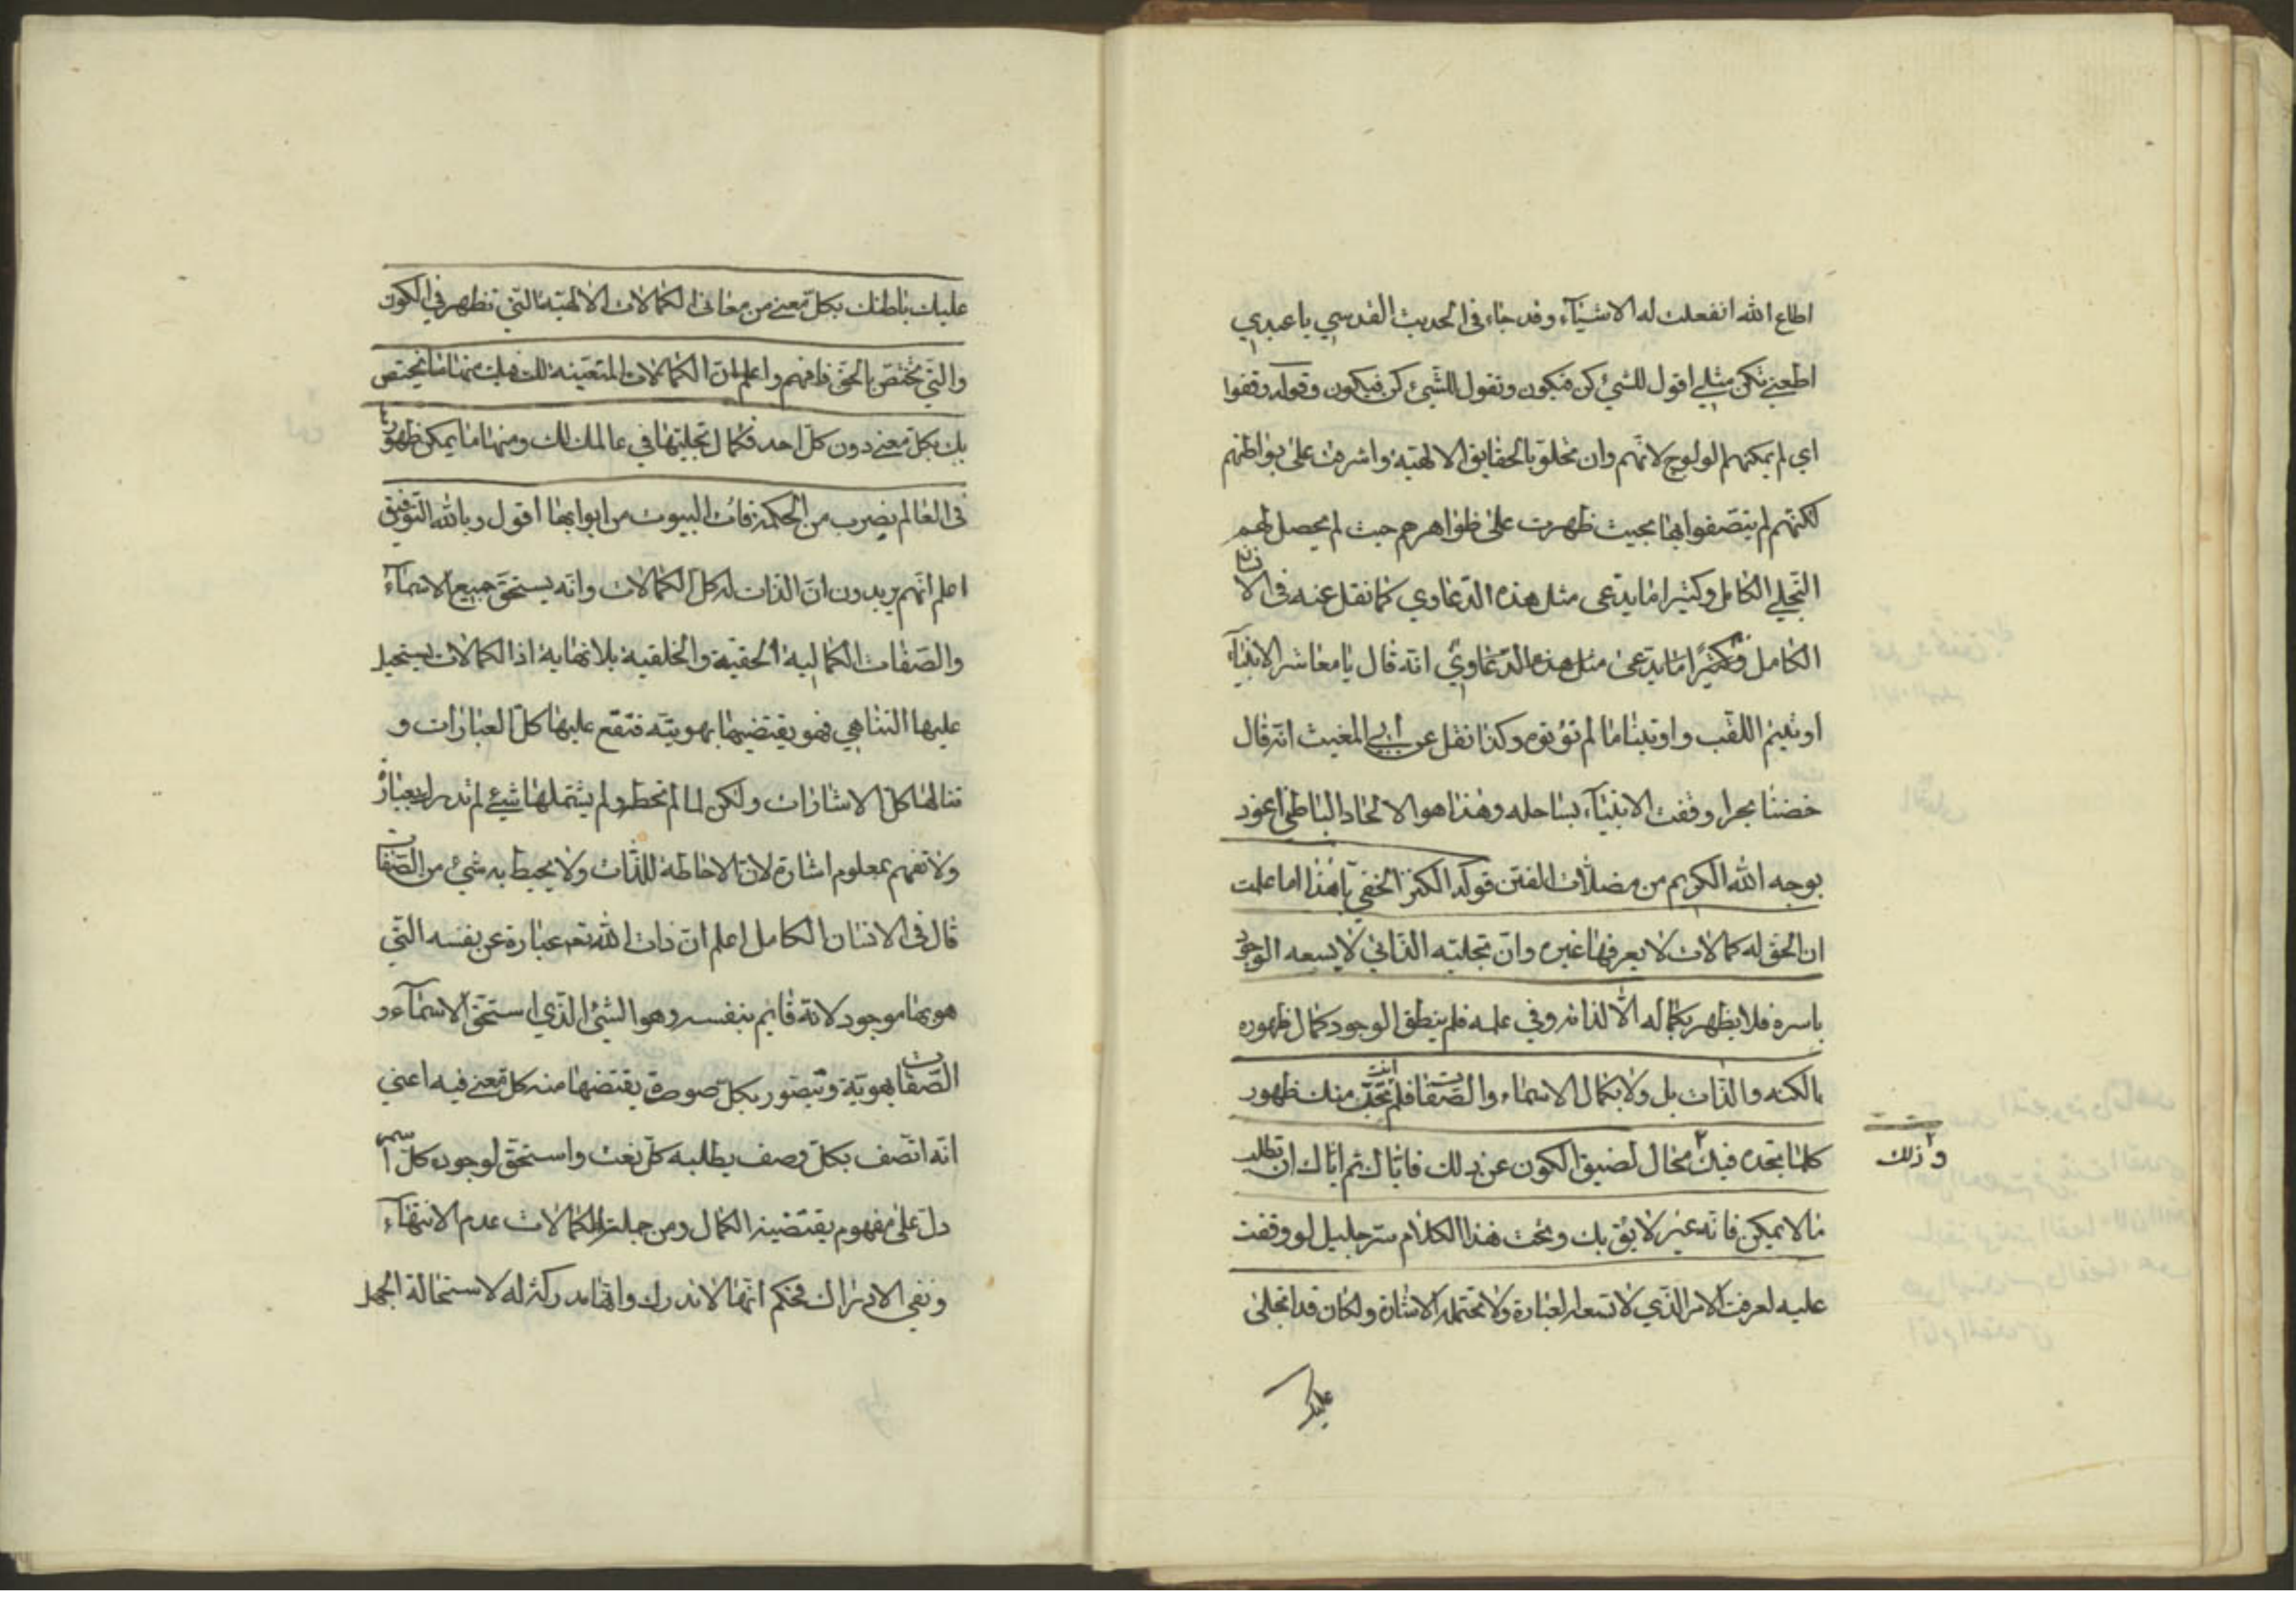 اطاع الله انفعلت له الاشيآء وقد جاء فى الحديث القدسي يا عبدي
اطعني تكن مثلي اقول للشئ كن فيكون وتقول للشئ كن فيكون وقوله وقفوا
اي لم يمكنهم الولوج لانهم وان تخلقو بالحقايق الالهية واشرقت على بواطنهم
لكنهم لم يتصفوا بها بحيث ظهرت على ظواهرهم حيث لم يحصل لهم
التجلي الكامل وكثيرا ما يدعى مثل هذه الدعاوي كما نقل عنه فى الانسان
الكامل وكثيرًا ما يدعى مثل هذه الدعاوي انه قال يا معاشر الانبيآء
اوتيتم اللقب واوتينا ما لم تؤتوه وكذا نقل عن ابي المغيث انه قال
خضنا بحرا وقفت الانبيآء بساحله وهذا هو الالحاد الباطني اعوذ
بوجه الله الكريم من مضلات الفتن قوله الكنز الخفي يا هذا اما علمت
ان الحق له كمالات لا يعرفها غيره وان تجليه الذاتي لا يسعه الوجود
باسره فلا يظهر بكماله الا لذاته وفي علمه فلم ينطق الوجود كمال ظهوره
بالكنه والذات بل ولا بكمال الاسماء والصفات فلم تجد انت منك ظهور
كلما تجده فيك محال لضيق الكون عن ذلك فاياك ثم اياك ان تطلب
وذلك
ما لا يمكن فانه غير لايق بك وتحت هذا الكلام سر جليل لو وقفت
عليه لعرفت الامر الذي لا تسعه العبارة ولا تحتمله الاشارة ولكان قد انجلى
عليك
عليك باطنك بكل معنى من معانى الكمالات الالهية التي تظهر في الكون
والتي تختص بالحق فافهم واعلم ان الكمالات المتعينه لك فيك منها ما يختص
بك بكل معنى دون كل احد فكمال تجليتها في عالمك لك ومنها ما يمكن ظهورها
فى العالم بضرب من الحكمة فات البيوت من ابوابها اقول وبالله التوفيق
اعلم انهم يريدون ان الذات له كل الكمالات وانه يستحق جميع الاسمآء
والصفات الكمالية الحقية والخلقية بلا نهاية اذ الكمالات يستحيل
عليها التناهي فهو يقتضيها بهويته فتقع عليها كل العبارات و
تنالها كل الاشارات ولكن لما لم تحط ولم يشتملها شيئ لم تدرك بعبارة
ولا تفهم بمعلوم اشارة لان الاحاطة للذات ولا يحيط به شئ من الصفات
قال فى الانسان الكامل اعلم ان ذات الله تعم عبارة عن نفسه التي
هو بها موجود لانه قايم بنفسه وهو الشئ الذي استحق الاسمآء و
الصفات بهويته وتتصور بكل صورة يقتضها منه كل معنى فيه اعني
انه اتصف بكل وصف يطلبه كل نعت واستحق لوجوده كل اسم
دل على مفهوم يقتضيه الكمال ومن جملة الكمالات عدم الانتهاء
ونفي الادراك فحكم انها لا تدرك وانها مدركة له لاستحالة الجهل